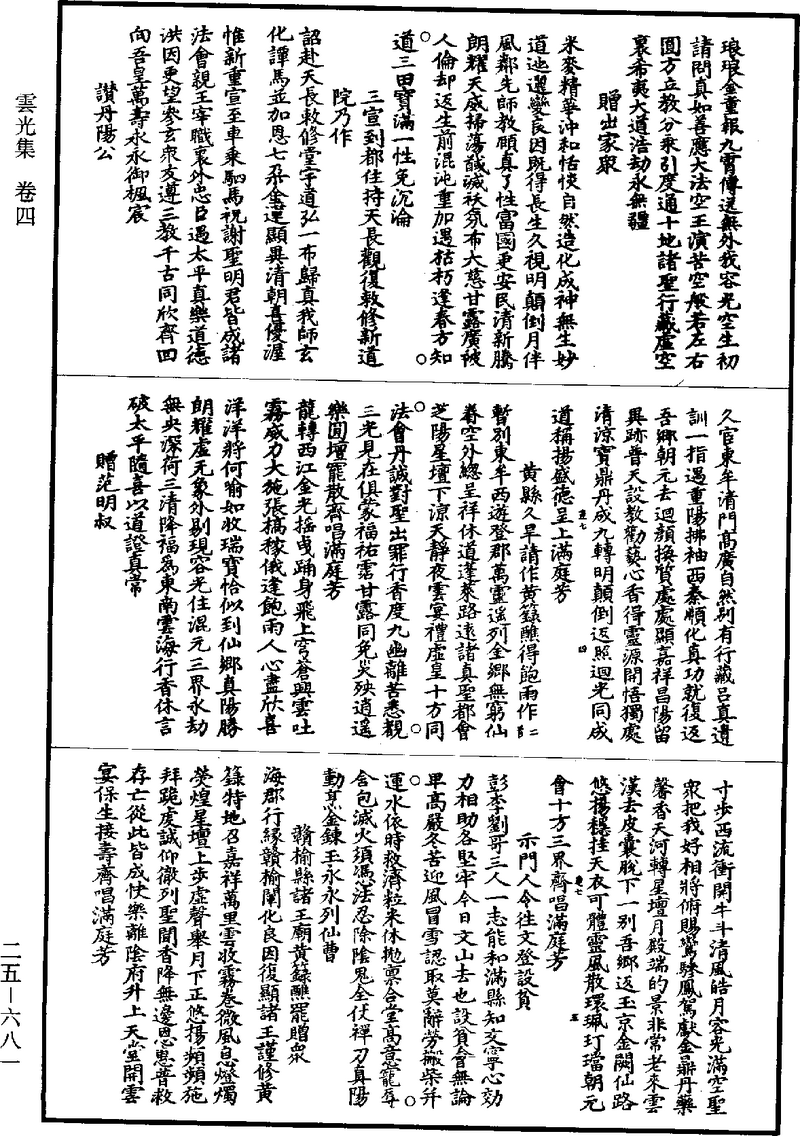 雲光集 卷四
二五—六八一
琅琅金童報九霄傳送無外我容光空生初
請問真如善應大法空王演苦空般若左右
圓方立教分乘引度通十地諸聖行藏虛空
裏希夷大道浩劫永無疆
贈出家眾
米麥精華沖和恬恢自然造化成神無生妙
道迤邐變良因既得長生久視明顛倒月伴
風鄰先師教願真了性富國更安民清新騰
朗耀天威掃蕩馘滅袄氛布大慈甘露廣被
人倫却返生前混沌重加遇枯朽逢春方知
道三田寶滿一性免沉淪
三宣到都住持天長觀復敕修新道
院乃作
詔赴天長敕修堂宇道弘一布歸真我師玄
化譚馬並加恩七朵金蓮顯異清朝喜優渥
惟新重宣至車乘駟馬祝謝聖明君皆成諸
法會親王宰職裏外忠臣遇太平真樂道德
洪因更望參玄眾友遵三教千古同欣齊回
向吾皇萬壽永永御楓宸
讚丹陽公
久官東牟清門高廣自然別有行藏呂真遺
訓一指遇重陽拂袖西秦順化真功就復返
吾鄉朝元去迴顏換質處處顯嘉祥昌陽留
異跡普天設教勸藝心香得靈源開悟獨處
清涼寶鼎丹成九轉明顛倒返照迴光同成
道稱揚盛德呈上滿庭芳
黃縣久旱請作黃籙醮得飽雨作二首
暫別東牟西遊登郡萬靈遙列金鄉無窮仙
眷空外總呈祥休道蓬萊路遠諸真聖都會
芝陽星壇下涼天靜夜雲宴禮虛皇十方同
法會丹誠對聖出罪行香度九幽離苦悉覩
三光見在俱蒙福祐霑甘露同免災殃逍遥
樂圓壇罷散齊唱滿庭芳
龍轉西江金光搖曳踊身飛上穹蒼興雲吐
霧威力大施張槁稼俄逢飽雨人心盡欣喜
洋洋將何喻如收瑞寶恰似到仙鄉真陽勝
朗耀虛无象外別現容光住混元三界永劫
無央深荷三清降福為東南雲海行香休言
破太平隨喜以道證真常
贈范明叔
寸步西流衝開牛斗清風皓月容光滿空聖
眾把我好相將俯賜鸞驂鳳駕獻金鼎丹藥
馨香天河轉星壇月殿端的景非常老來雲
漢去皮囊脫下一別吾鄉返玉京金闕仙路
悠揚穩挂天衣可體靈風散環珮玎璫朝元
會十方三界齊唱滿庭芳
示門人令往文登設貧
彭李劉哥三人一志能和滿縣知文寧心効
力相助各堅牢今日文山去也設貧會無論
卑高嚴冬苦迎風冒雪認取莫辭勞搬柴并
運水依時救濟粒米休拋稟合堂高意寵辱
含包滅火須憑法忍除陰鬼全仗禪刀真陽
動烹金鍊玉永永列仙曹
贛榆縣諸王廟黃籙醮罷贈眾
海郡行緣贛榆闡化良因復顯諸王謹修黃
籙特地召嘉祥萬里雲收霧卷微風息燈燭
熒煌星壇上步虛聲舉月下正悠揚頻頻施
拜跪虔誠仰徹列聖聞香降無邊恩惠普救
存亡從此皆成快樂離陰府升上天堂開雲
宴保生接壽齊唱滿庭芳